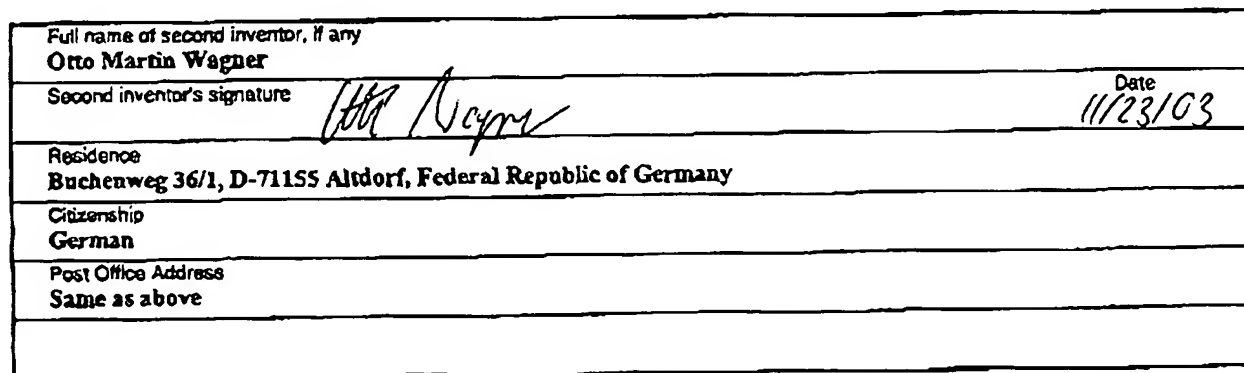 Full name of second inventor, if any
Otto Martin Wagner
Second inventor's signature
Otto Wagner
Date
11/23/03
Residence
Buchenweg 36/1, D-71155 Altdorf, Federal Republic of Germany
Citizenship
German
Post Office Address
Same as above